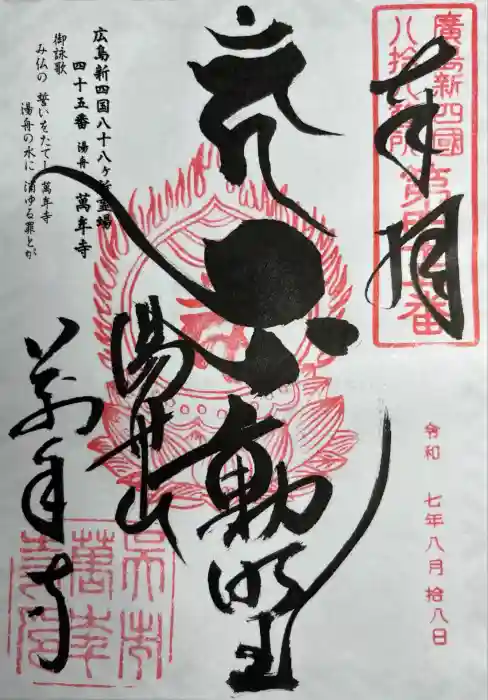 廣島新四國
八拾八箇所 第四十五番
奉拝
令和 七年八月拾八日
不動明王
湯舟山
萬年寺
広島新四国八十八ヶ所霊場
四十五番 湯舟 萬年寺
御詠歌
み仏の 誓いをたてし 萬年寺
湯舟の水に 消ゆる罪とが